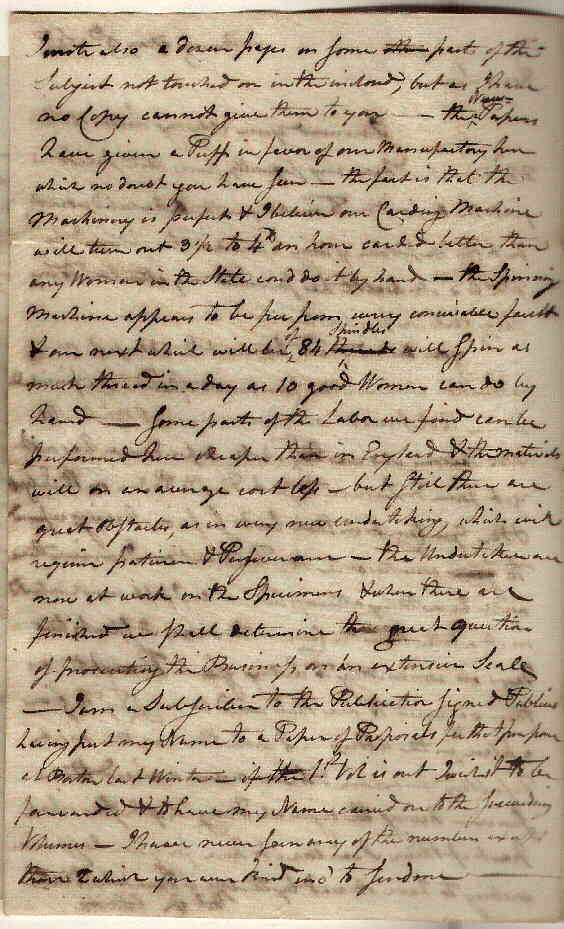 I wrote also a dozen pages on some other parts of the
Subject not touched on in the inclosed, but as I have
no Copy cannot give them to you — the News Papers
have given a Puff in favor of our Manufactory here
which no doubt you have seen — the fact is that the
Machinery is perfect & I believe our Carding Machine
will turn out 3½ to 4 lb an hour carded better than
any Woman in the State could do it by hand — the Spinning
Machine appears to be free from every conceivable fault
& our next which will be of 84 threads Spindles will Spin as
much thread in a day as 10 good Women can do by
hand — Some parts of the Labor we find can be
performed here cheaper than in England & the materials
will on an average cost less — but still there are
great Obstacles, as in every new undertaking, which will
require patience & Perseverance — the Undertakers are
now at work on the Specimens & when there are
finished we shall determine the great question
of prosecuting the Business on an extensive Scale
— I am a Subscriber to the Publication signed Publius
having put my Name to a Paper of Proposals for that purpose
at Boston last Winter — if the 1st Vol is out I wish it to be
forwarded & to have my Name carried on to the succeeding
Volumes — I have never seen any of the numbers except
those 2 which you were kind eno' to send me —